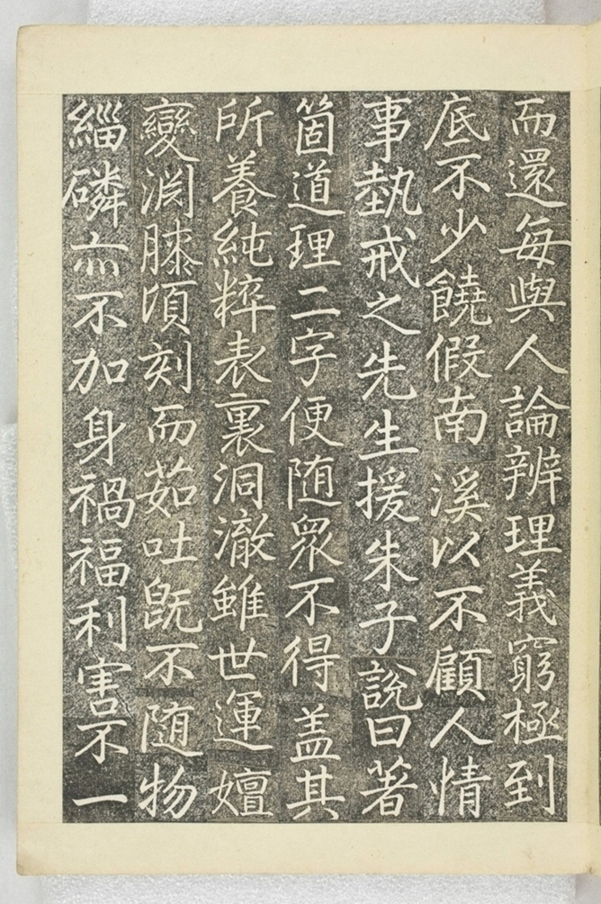 而還每與人論辨理義窮極到
底不少饒假南溪以不顧人情
事執戒之先生援朱子說曰著
箇道理二字便随衆不得盖其
所養純粹表裏洞澈雖世運嬗
變淵膝頃刻而茹吐旣不随物
緇磷亦不加身禍福利害不一